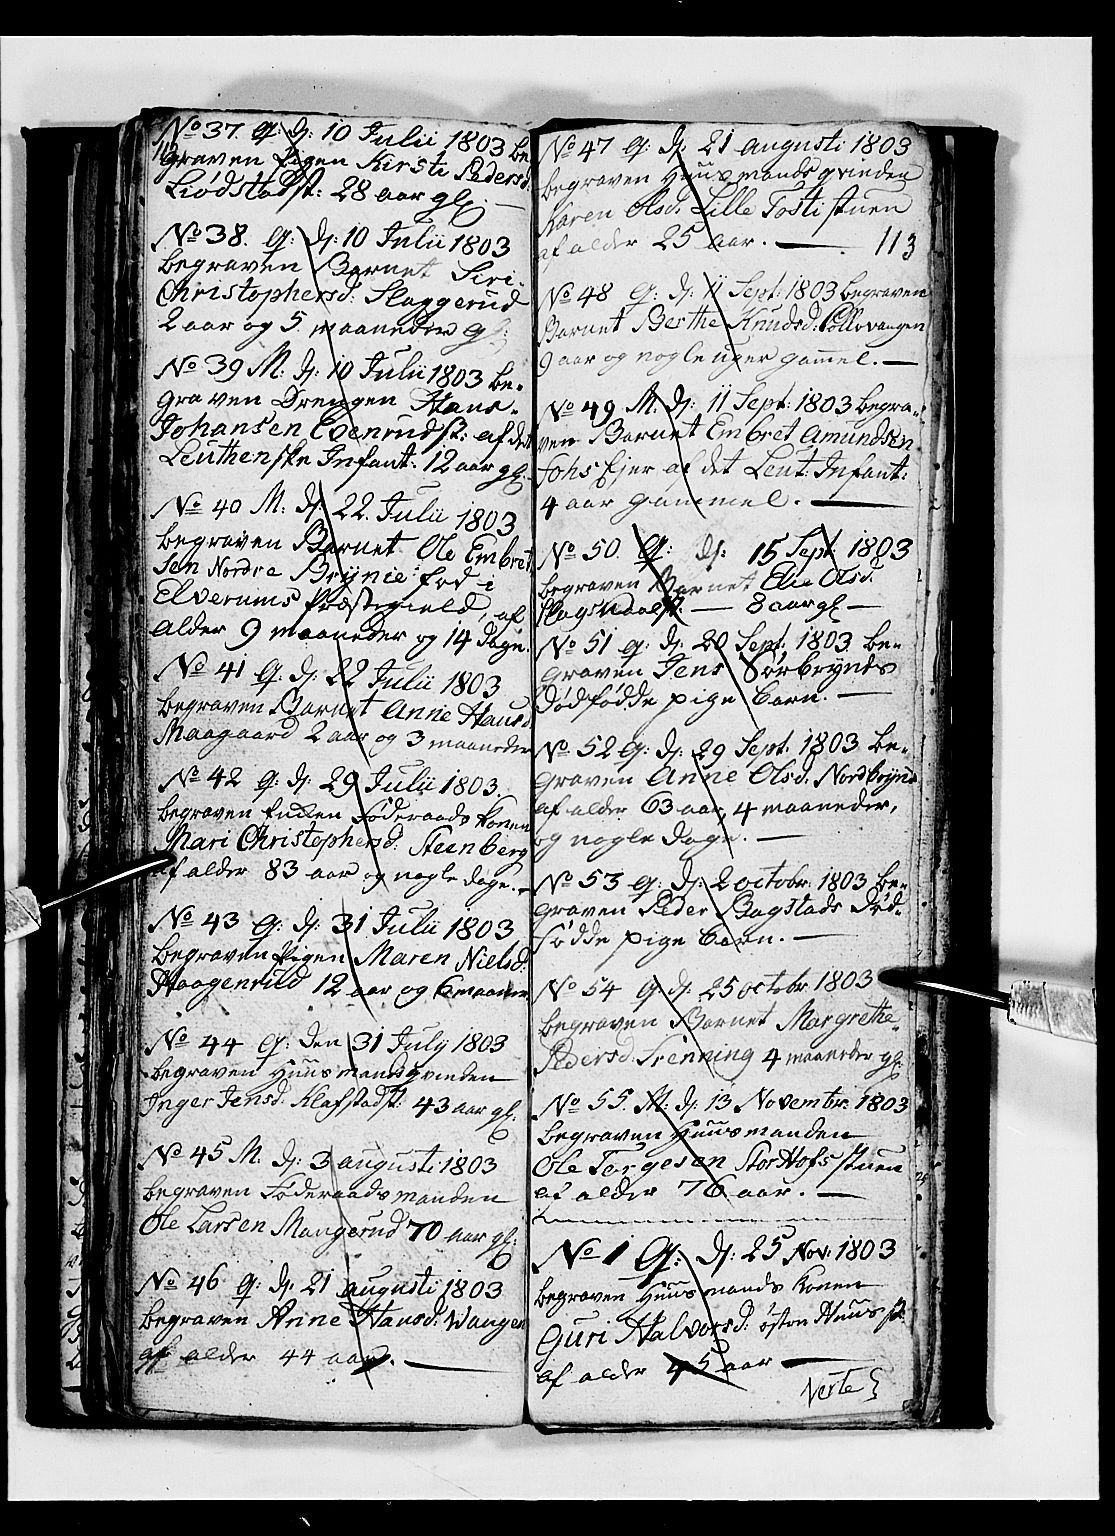 No 37. Q: d: 10 Julii 1803 be-
graven Pigen Kirsti Pedersd.
Liødstadst: 28 aar gl. —
No 38. Q: d: 10 Julii 1803
begraven Barnet Siri
Christophersd: Slaggerud
2 aar og 5 maaneder gl:
No 39 M. d: 10 Julii 1803 be-
graven Drengen Hans
Johansen Evenrudst: af det
Leuthenske Infant: 12 aar gl.
No 40 M. d: 22. Julii 1803
begraven Barnet Ole Embret
sen Nordre Brynie fød i
Elverums Præstegield, af
alder 9 maaneder og 14 dage.
No 41 Q. d: 22 Julii 1803
begraven Barnet Anne Hansd
Maagaard 2 aar og 3 maaneder
No 42 Q. d: 29 Julii 1803.
begraven Enken Føderaads Konen
Mari Christophersd: Steenberg
af alder 83 aar og nogle dage. —
No 43 Q. d: 31 Julii 1803
begraven Pigen Maren Nielsd:
Haagenrud 12 aar og 6 maaner
No 44 Q: den 31 July 1803
begraven Huusmandsqvinden
Inger Jensd. Klafstadst: 43 aar gl.
No 45 M. d: 3 augusti 1803
begraven Føderaadsmanden
Ole Larsen Mangerud 70 aar gl:
No 46 Q: d: 21 augusti 1803
begraven Anne Hansd: Wangen
af alder 44 aar. —
No 47 Q: d: 21 augusti 1803
begraven Huusmandsqvinden
Karen Olsd. Lille Tosti stuen
af alder 25 aar. — 113
No 48 Q: d: 11 Sept: 1803 begraven
Barnet Berthe Knudsd:
9 aar og nogle uger gammel. —
No 49 M. d: 11 Sept: 1803 begra-
ven Barnet Embret Amundsen
af det Leut: Infant:
4 aar gammel. —
No 50. Q: d: 15 Sept: 1803
begraven Barnet Elie Olsd.
— 8 aar gl —
No 51 Q: d: 20 Sept. 1803 be-
graven Jens Sørbrynds
dødfødde pige barn. —
No 52 Q: d: 29 Sept. 1803 be-
graven Anne Olsd. Nordbrynd
af alder 63 aar, 4 maaneder,
og nogle dage. —
No 53 Q: d: 2 octobr 1803 be-
graven Peder Bagstads død-
fødde pige barn. —
No 54 Q d: 25 octobr 1803
begraven Barnet Margrethe
Pedersd: Trenning 4 maaneder gl:
No 55. M. d: 13 Novembr: 1803
begraven Huusmanden
Ole Torgesen Stor Hofs stuen
af alder 76 aar. —
No 1 Q: d: 25 Nov: 1803
begraven Huusmands Konen
Guri Halvorsd: østen Huus
af alder 45 aar —
Verte